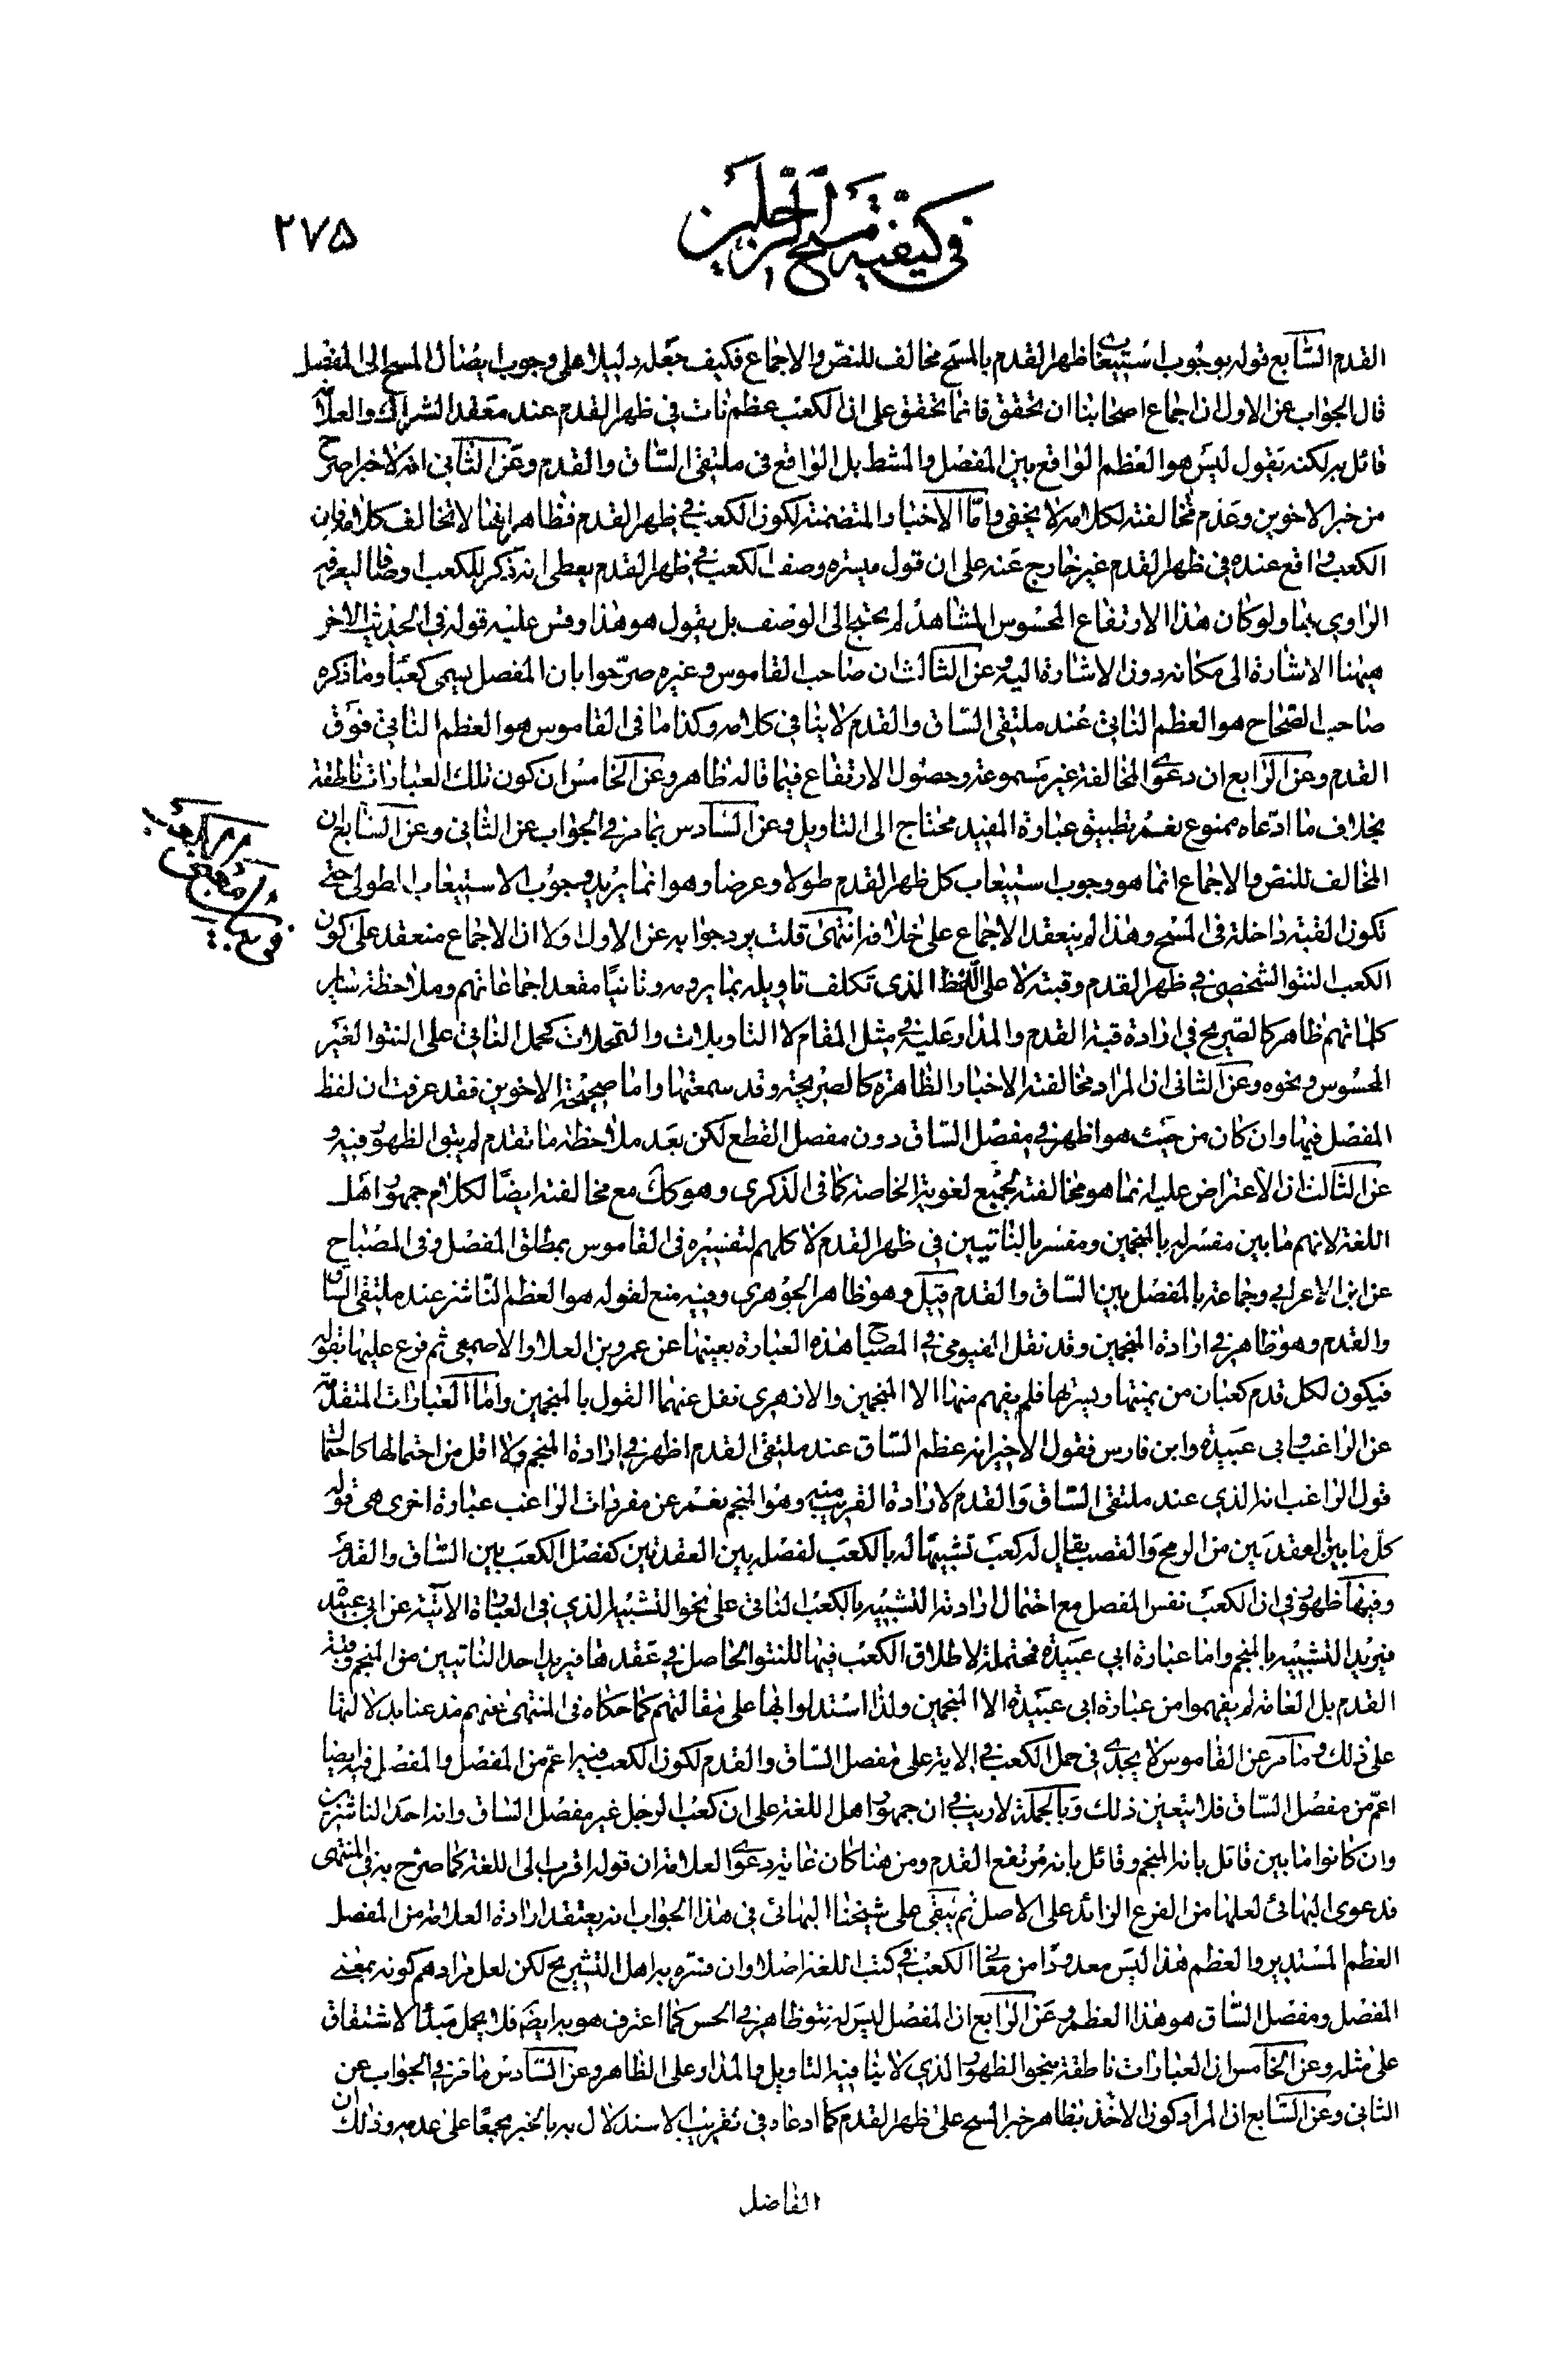 في كيفية مسح الرجلين
٢٧۵
القدم السابع قوله بوجوب استيعاب ظهر القدم بالمسح مخالف للنص والاجماع فكيف جعله دليلا على وجوب ايصال المسح الى المفصل
قال الجواب عن الاول ان اجماع اصحابنا ان تحقق فانما تحقق على ان الكعب عظم نات في ظهر القدم عند معقد الشراك والعلامة
قائل به لكنه يقول ليس هو العظم الواقع بين المفصل والمشط بل الواقع في ملتقى الساق والقدم وعن الثاني انه لا خبر اصرح
من خبر الاخوين وعدم مخالفته لكلامه لا يخفى واما الاخبار المتضمنة لكون الكعب في ظهر القدم فظاهر انها لا تخالف كلامه فان
الكعب واقع عنده في ظهر القدم غير خارج عنه على ان قول ميسره وصف الكعب في ظهر القدم يعطى انه ذكر للكعب اوصافا ليعرفه
الراوي بها ولو كان هذا الارتفاع المحسوس المشاهد لم يحتج الى الوصف بل يقول هو هذا وقس عليه قوله في الحديث الاخر
هيهنا الاشارة الى مكانه دون الاشارة اليه وعن الثالث ان صاحب القاموس وغيره صرحوا بان المفصل يسمى كعبا وما ذكره
صاحب الصحاح هو العظم الناتئ عند ملتقى الساق والقدم لا ينافي كلامه وكذا ما في القاموس هو العظم الناتئ فوق
القدم وعن الرابع ان دعوى المخالفة غير مسموعة وحصول الارتفاع فيما قاله ظاهر وعن الخامس ان كون تلك العبارات ناطقة
بخلاف ما ادعاه ممنوع نعم تطبيق عبارة المفيد محتاج الى التاويل وعن السادس بما مر في الجواب عن الثاني وعن السابع ان
المخالف للنص والاجماع انما هو وجوب استيعاب كل ظهر القدم طولا وعرضا وهو انما يريد وجوب الاستيعاب الطولى حتى
تكون القبة داخلة في المسح وهذا لم ينعقد الاجماع على خلافه انتهى قلت يرد جوابه عن الاول اولا ان الاجماع منعقد على كون
الكعب النتو الشخصي في ظهر القدم وقبته لا على اللفظ الذى تكلف تاويله بما يرومه وثانيا مقعد اجماعاتهم وملاحظة ساير
كلماتهم ظاهر كالصريح في ارادة قبة القدم والمدار عليه في مثل المقام لا التاويلات والتمحلات كحمل الناتئ على النتو الغير
المحسوس ونحوه وعن الثانى ان المراد مخالفته الاخبار الظاهرة كالصريحة وقد سمعتها واما صحيحة الاخوين فقد عرفت ان لفظ
المفصل فيها وان كان من حيث هو اظهر في مفصل الساق دون مفصل القطع لكن بعد ملاحظة ما تقدم لم يبق الظهور فيه و
عن الثالث ان الاعتراض عليه انما هو مخالفته لجميع لغوية الخاصة كما في الذكرى وهو كك مع مخالفته ايضا لكلام جمهور اهل
اللغة لانهم ما بين مفسر له بالمنجمين ومفسر بالناتيين في ظهر القدم لا كلهم لتفسيره في القاموس بمطلق المفصل وفي المصباح
عن ابن الاعرابي وجماعة بالمفصل بين الساق والقدم قيل وهو ظاهر الجوهري وفيه منع لقوله هو العظم الناشز عند ملتقى الساق
والقدم وهو ظاهر في ارادة المنجمين وقد نقل الفيومى في المصباح هذه العبارة بعينها عن عمرو بن العلا والاصمعي ثم فرع عليها بقوله
فيكون لكل قدم كعبان من يمنتها ويسرتها فلم يفهم منها الا المنجمين والازهري نقل عنهما القول بالمنجمين واما العبارات المتقدمة
عن الراغب وابي عبيدة وابن فارس فقول الاخير انه عظم الساق عند ملتقى القدم اظهر في ارادة المنجم ولا اقل من احتمالها كاحتمال
قول الراغب انه الذي عند ملتقى الساق والقدم لارادة القرب منه وهو المنجم نعم عن مفردات الراغب عبارة اخرى هى قوله
كل ما بين العقدتين من الرمح والقصب يقال له كعب تشبيها له بالكعب لفصل بين العقدتين كفصل الكعب بين الساق والقدم
وفيها ظهور في ان الكعب نفس المفصل مع احتمال ارادته التشبيه بالكعب الناتئ على نحو التشبيه الذي في العبارة الآتية عن ابي عبيدة
فيريد التشبيه بالمنجم واما عبارة ابي عبيدة فمحتملة لاطلاق الكعب فيها للنتو الحاصل في عقدها فيريد احد الناتيين من المنجم وقبة
القدم بل العامة لم يفهموا من عبارة ابي عبيدة الا المنجمين ولذا استدلوا بها على مقالتهم كما حكاه في المنتهى عنهم مدعنا بدلالتها
على ذلك وما مر عن القاموس لا يجدي في حمل الكعب في الاية على مفصل الساق والقدم لكون الكعب فيه اعم من المفصل والمفصل فيه ايضا
اعم من مفصل الساق فلا يتعين ذلك وبالجملة لا ريب في ان جمهور اهل اللغة على ان كعب الرجل غير مفصل الساق وانه احد الناشزين
وان كانوا ما بين قائل بانه المنجم وقائل بانه مرتفع القدم ومن هنا كان غاية دعوى العلامة ان قوله اقرب الى اللغة كما صرح به في المنتهى
فدعوى البهائى لعلها من الفرع الزائد على الاصل ثم يبقى على شيخنا البهائى في هذا الجواب انه يعتقد ارادة العلامة من المفصل
العظم المستدير والعظم هذا ليس معدودا من معاني الكعب في كتب اللغة اصلا وان فسره به اهل التشريح لكن لعل مرادهم كونه بمعنى
المفصل ومفصل الساق هو هذا العظم وعن الرابع ان المفصل ليس له نتو ظاهر في الحس كما اعترف هو به ايضا فلا يحمل مبدأ الاشتقاق
على مثله وعن الخامس ان العبارات ناطقة بنحو الظهور الذي لا ينافيه التاويل والمدار على الظاهر وعن السادس ما مر في الجواب عن
الثانى وعن السابع ان المراد كون الاخذ بظاهر خبر المسح على ظهر القدم كما ادعاه في تقريب الاستدلال به بالخبر مجمعا على عدمه وذلك ان
الفاضل